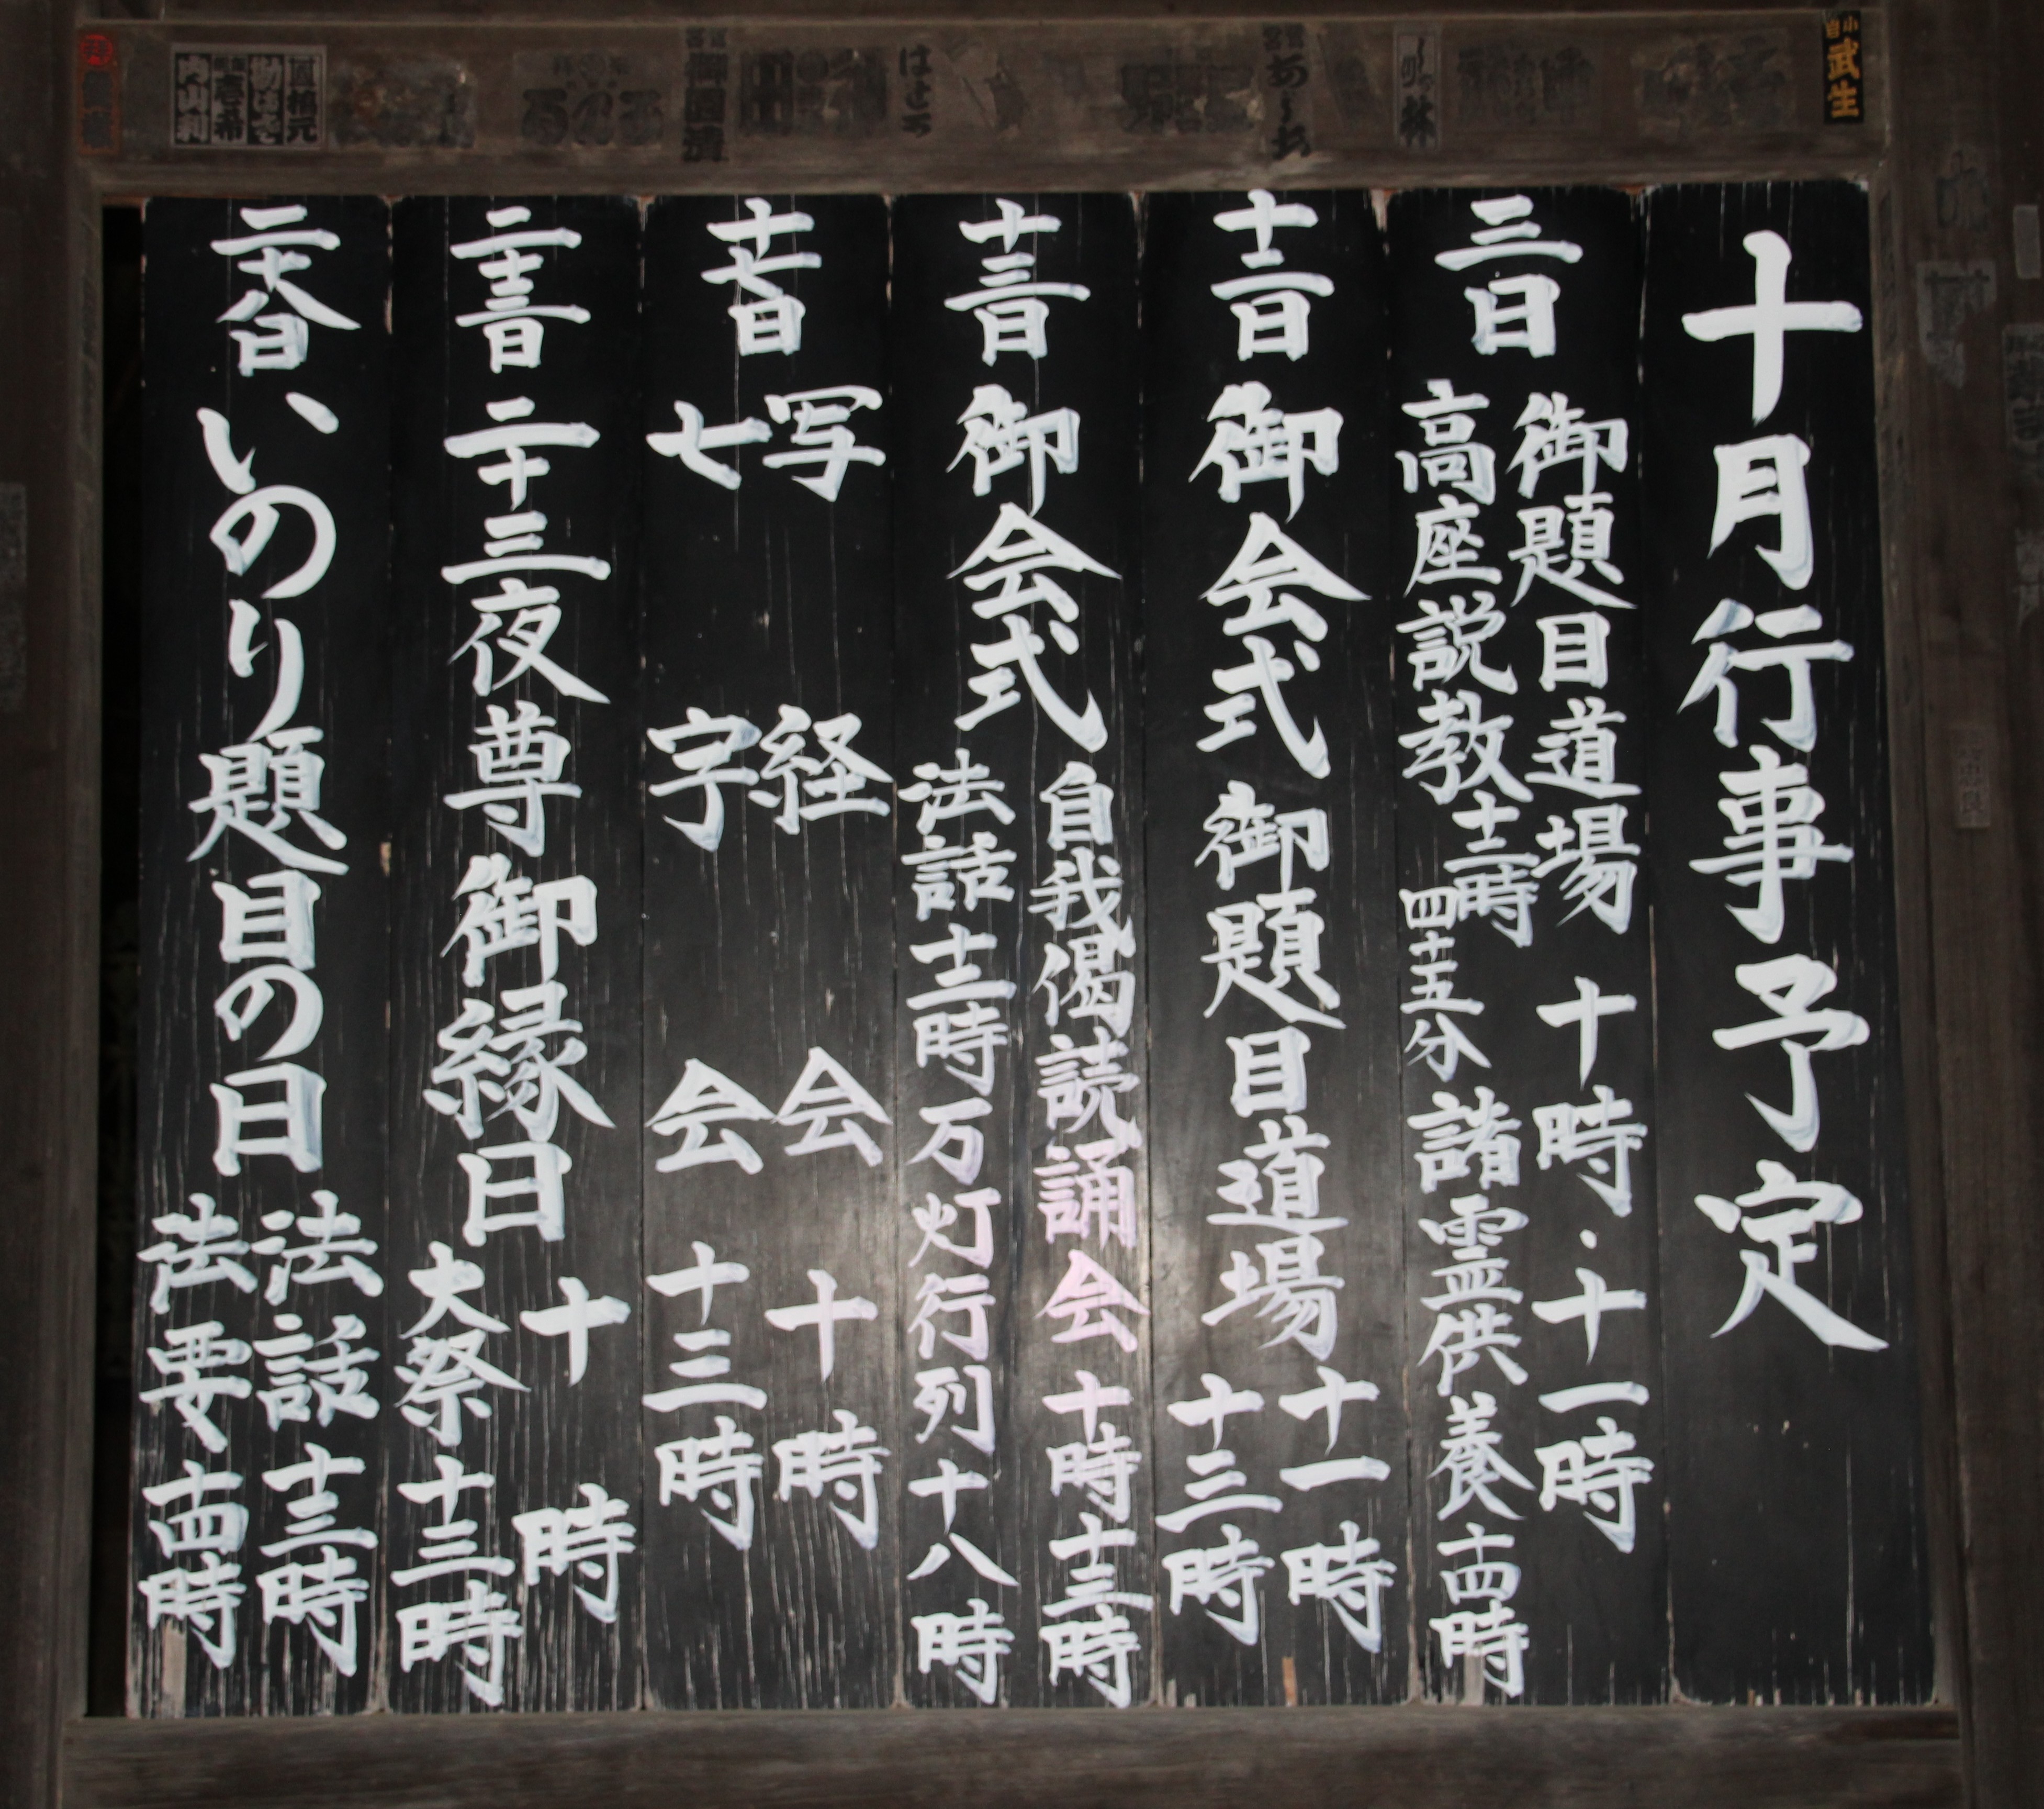 十月行事予定
三日
御題目道場 十時・十一時
高座説教 十二時四十五分 諸霊供養 十四時
十二日 御会式 御題目道場
十一時
十三時
十三日 御会式
自我偈読誦会 十時 十三時
法話 十三時 万灯行列 十八時
十七日
写経会 十時
七字会 十三時
二十三日 二十三夜尊御縁日
十時
大祭 十三時
二十八日 いのり題目の日
法話 十三時
法要 十四時
武生